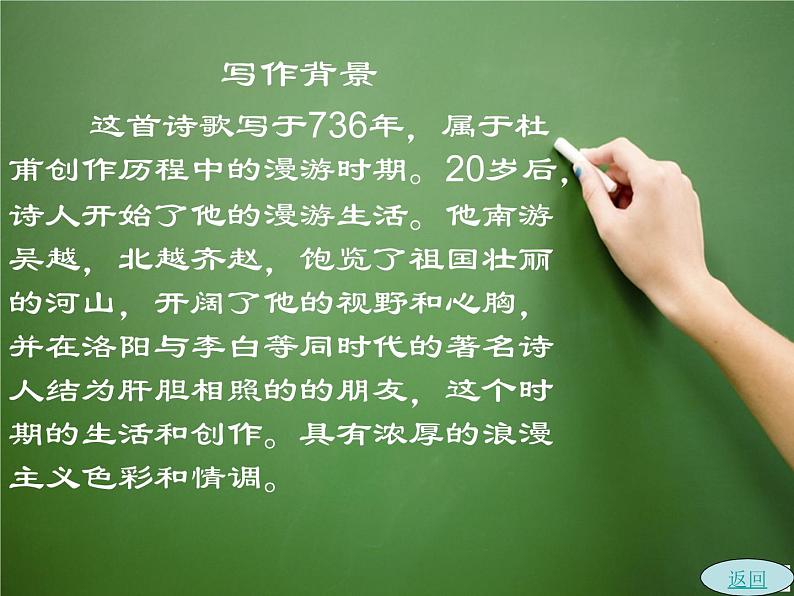 写作背景
这首诗歌写于736年，属于杜
甫创作历程中的漫游时期。20岁后，
诗人开始了他的漫游生活。他南游
吴越，北越齐赵，饱览了祖国壮丽
的河山，开阔了他的视野和心胸，
并在洛阳与李白等同时代的著名诗
人结为肝胆相照的的朋友，这个时
期的生活和创作。具有浓厚的浪漫
主义色彩和情调。
返回